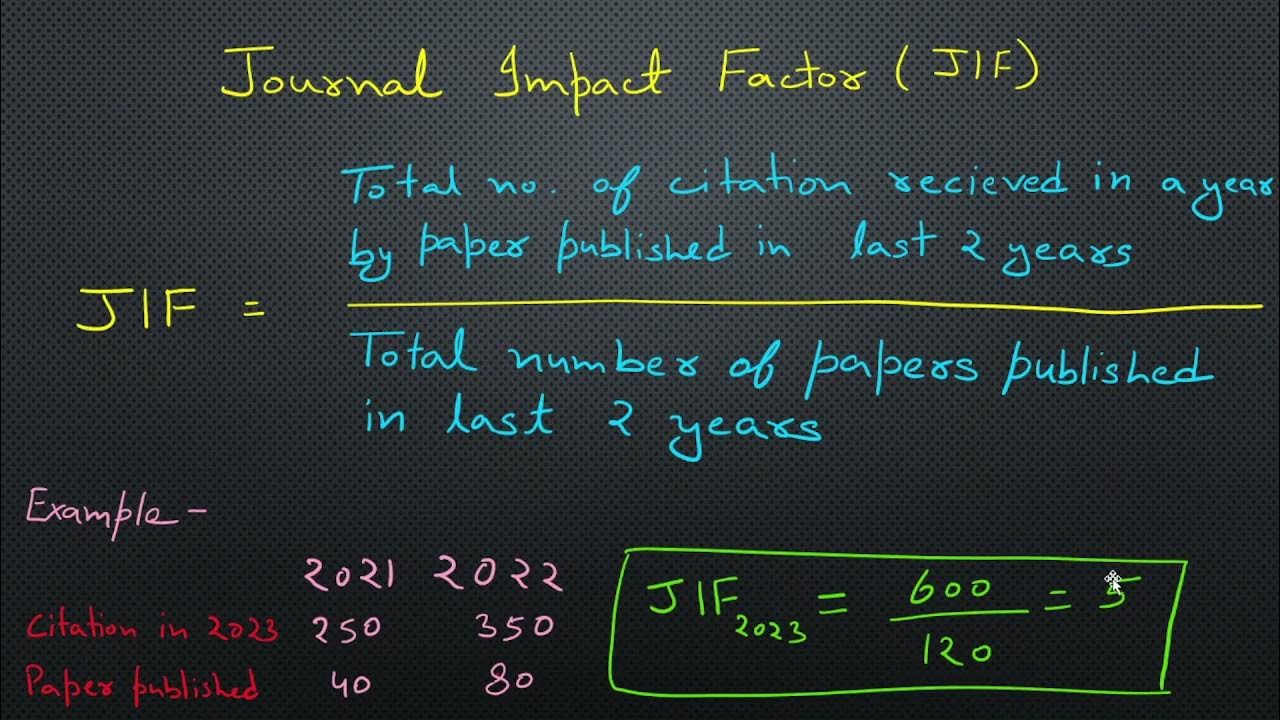 Journal Impact Factor (JIF)
Total no. of citation recieved in a year
by paper published in last 2 years
JIF =
Total number of papers published
in last 2 years
Example -
2021 2022
Citation in 2023 250 350
Paper published 40 80
JIF2023 = 600 / 120 = 5